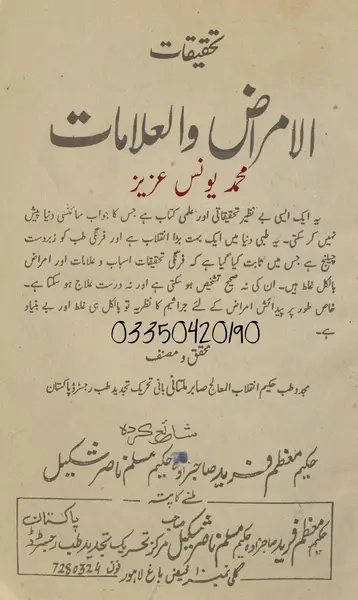 تحقیقات
الامراض والعلامات
محمد یونس عزیز
یہ ایک ایسی بے نظیر تحقیقاتی اور علمی کتاب ہے جس کا جواب سائنسی دنیا پیش
نہیں کر سکتی۔ یہ طبی دنیا میں ایک بہت بڑا انقلاب ہے اور فرنگی طب کو زبردست
چیلنج ہے جس میں ثابت کیا گیا ہے کہ فرنگی تحقیقات اسباب و علامات اور امراض
بالکل غلط ہیں۔ ان کی نہ صحیح تشخیص ہو سکتی ہے اور نہ درست علاج ہو سکتا ہے۔
خاص طور پر پیدائش امراض کے لئے جراثیم کا نظریہ تو بالکل ہی غلط اور بے بنیاد
ہے۔
03350420190
محقق و مصنف
مجدد طب حکیم انقلاب المعالج صابر ملتانی بانی تحریک تجدید طب رجسٹرڈ پاکستان
شائع کردہ
حکیم معظم فرید صاحبزادہ حکیم مسلم ناصر شکیل
ملنے کا پتہ
حکیم معظم فرید صاحبزادہ حکیم مسلم ناصر شکیل صاحب مرکز تحریک تجدید طب رجسٹرڈ پاکستان
گلی نمبر 10 فیض باغ لاہور فون 7280324